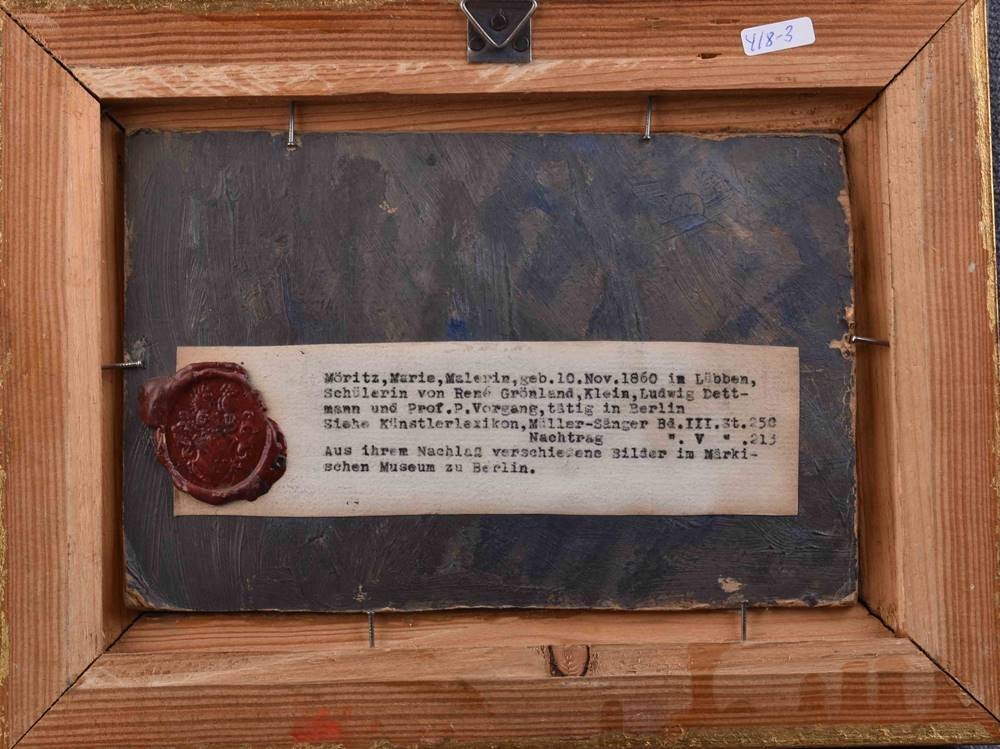 418-3
Möritz,Marie,Malerin,geb.10.Nov.1860 in Lübben,
Schülerin von René Grönland,Klein,Ludwig Dett-
mann und Prof.P.Vorgang,tätig in Berlin
Siehe Künstlerlexikon,Müller-Sänger Bd.III.St.250
Nachtrag ". V " .213
Aus ihrem Nachlaß verschiedene Bilder im Märki-
schen Museum zu Berlin.